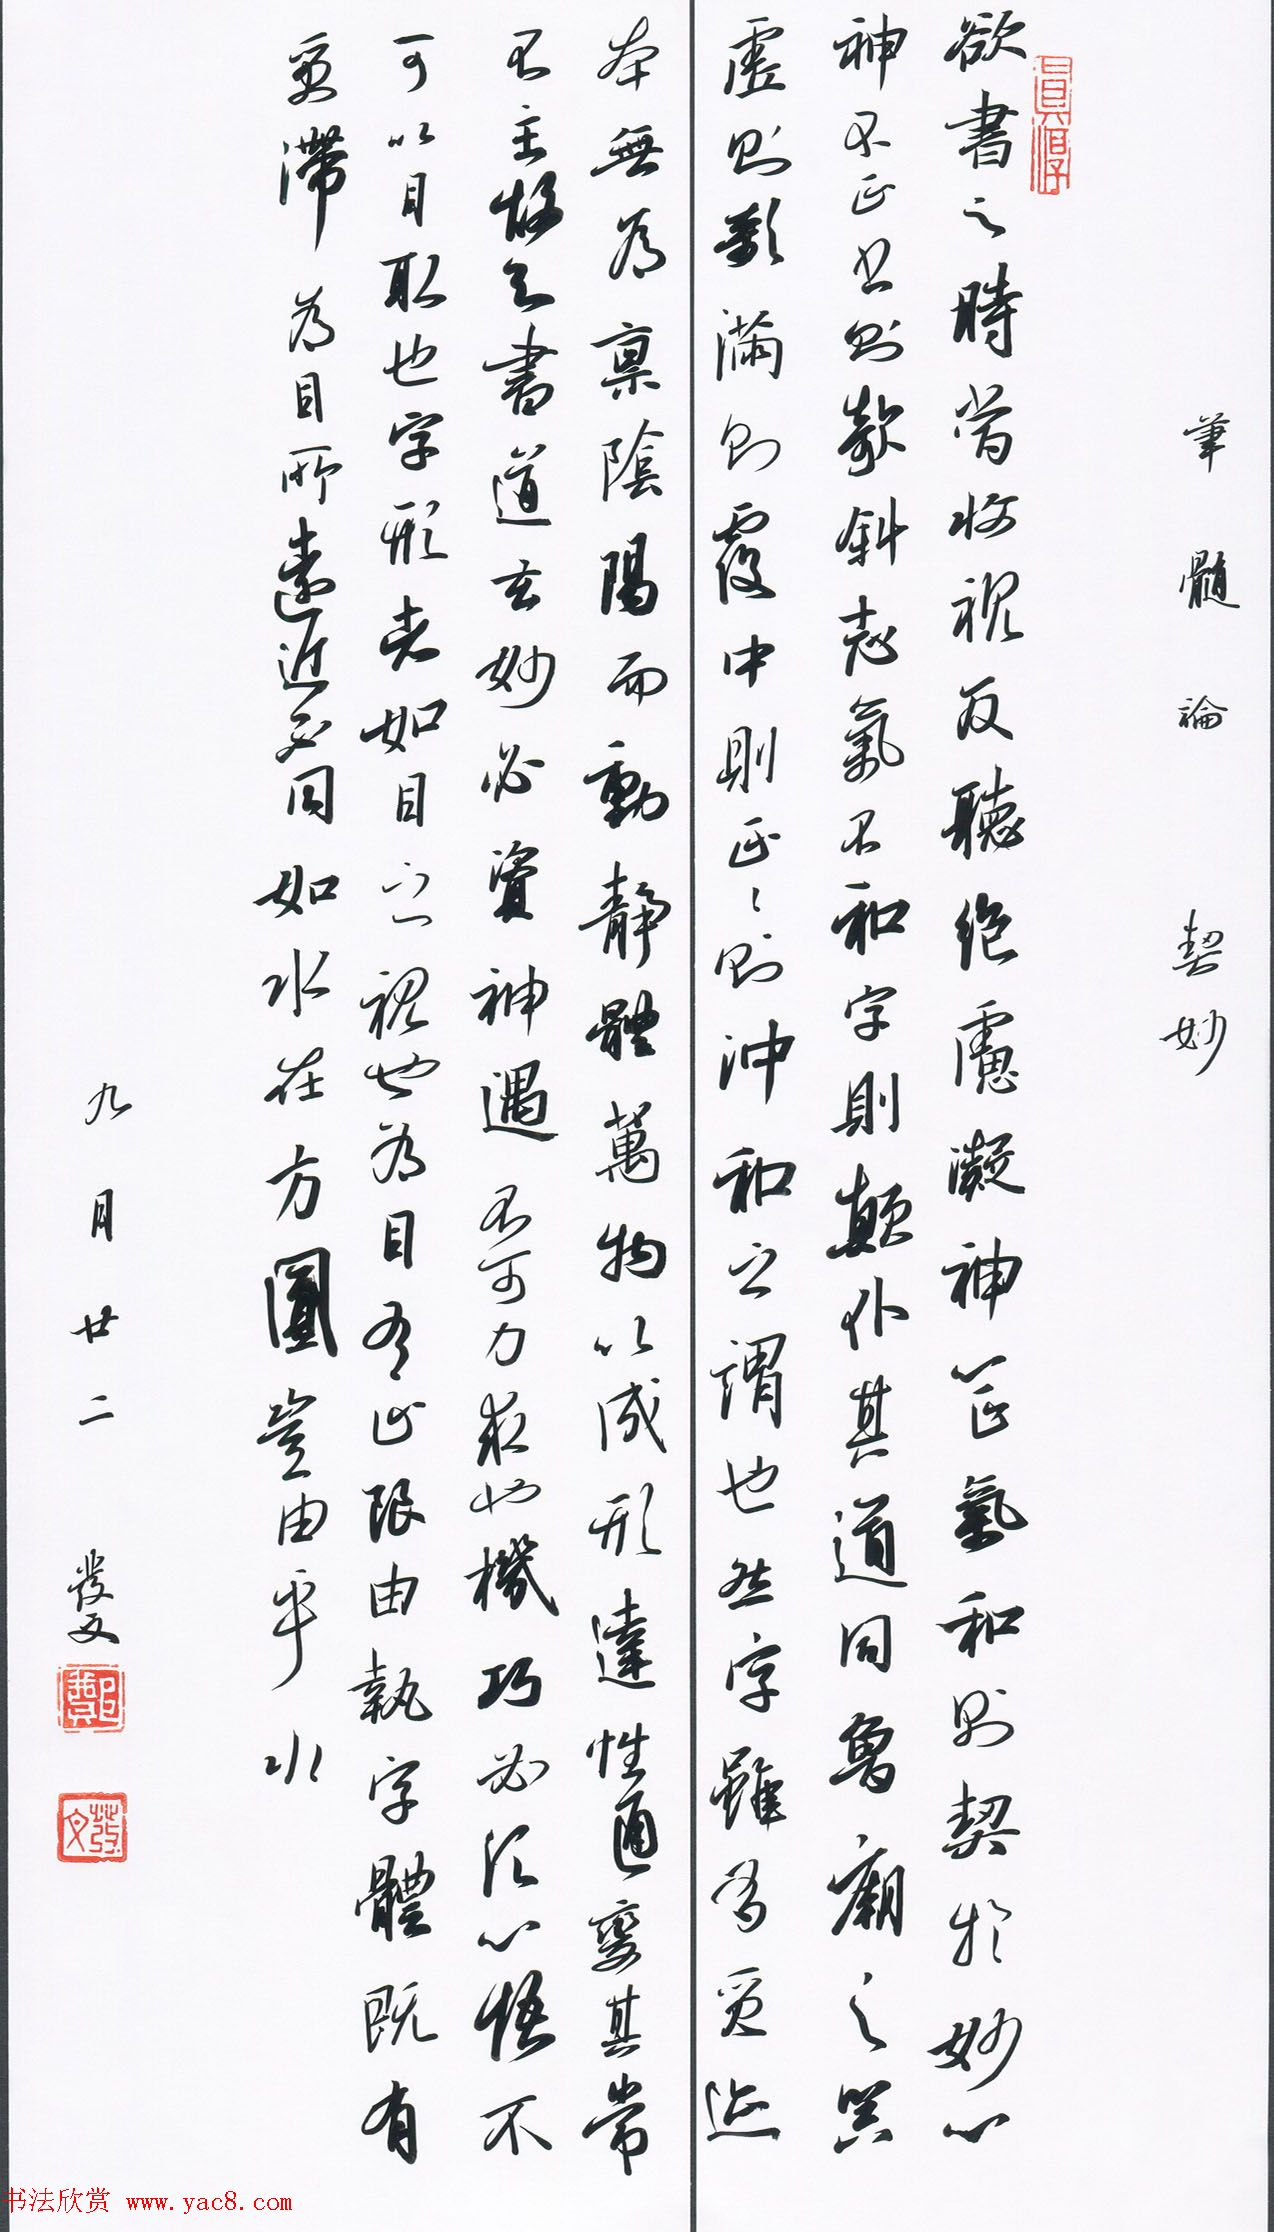 筆髓論 契妙
真淳
欲書之時當收視反聽絕慮凝神心正氣和則契於妙心
神不正書則欹斜志氣不和字則顛仆其道同魯廟之器
虛則欹滿則覆中則正〻則沖和之謂也然字雖有質迹
本無為稟陰陽而動靜體萬物以成形達性通變其常
不主故知書道玄妙必資神遇不可力求也機巧必須心悟不
可以目取也字形者如目之視也為目有止限由執字體既有
質滯為目所遠近不同如水在方圓豈由乎水
九月廿二 發文
鄭
發文
书法欣赏 www.yac8.com